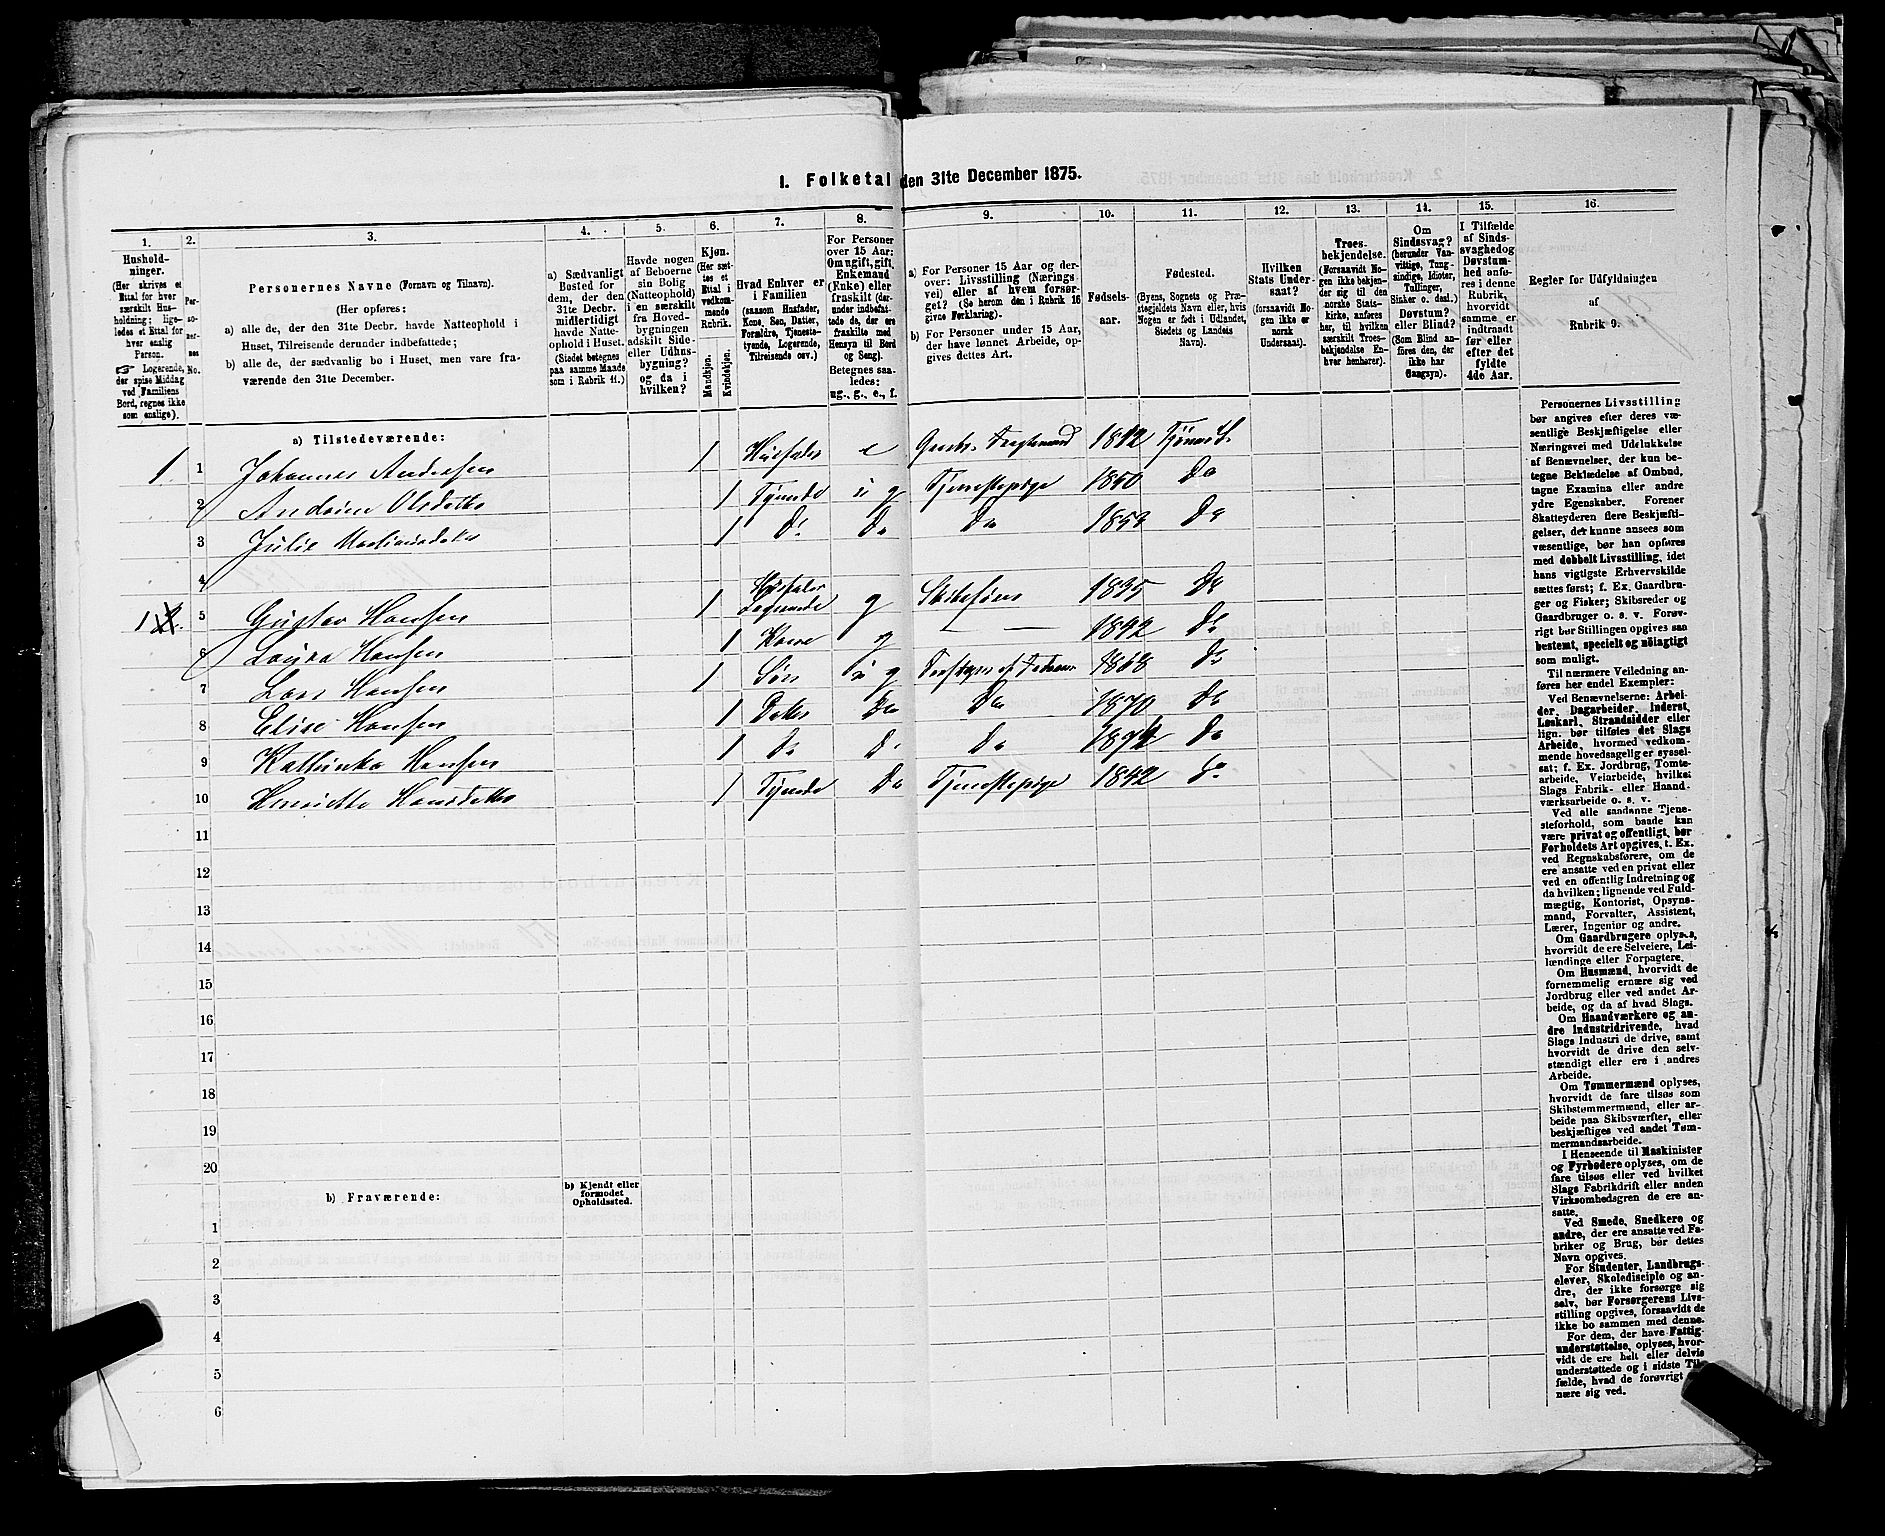 1. Folketal den 31te December 1875.
1. 2. 3. 4. 5. 6. 7. 8. 9. 10. 11. 12. 13. 14. 15. 16.
Hushold-
ninger.
(Her skrives et
Ettal for hver
særskilt Hus-
holdning; lige-
ledes et Ettal for
hver enslig
Person.
☞ Logerende,
der spise Middag
ved Familiens
Bord, regnes ikke
som enslige).
Per-
so-
ner-
nes
No.
Personernes Navne (Fornavn og Tilnavn).
(Her opføres:
a) alle de, der den 31te Decbr. havde Natteophold i
Huset, Tilreisende derunder indbefattede;
b) alle de, der sædvanlig bo i Huset, men vare fra-
værende den 31te December.
a) Sædvanligt
Bosted for
dem, der den
31te Decbr.
midlertidigt
havde Natte-
ophold i Huset.
(Stedet betegnes
paa samme Maade
som i Rubrik 11.)
Havde nogen
af Beboerne
sin Bolig
(Natteophold)
i en særskilt
fra Hoved-
bygningen
adskilt Side-
eller Udhus-
bygning?
og da i
hvilken?
Kjøn.
(Her sæt-
tes et
Ettal i
vedkom-
mende
Rubrik.
Mandkjøn.
Kvindekjøn.
Hvad Enhver er
i Familien
(saasom Husfader,
Kone, Søn, Datter,
Forældre, Tjeneste-
tyende, Logerende,
Tilreisende osv.)
For Personer
over 15 Aar:
Om ugift, gift,
Enkemand
(Enke) eller
fraskilt (der-
under indbefat-
tede de, der ere
fraskilte med
Hensyn til Bord
og Seng).
Betegnes saa-
ledes:
ug., g., e., f.
a) For Personer 15 Aar og der-
over: Livsstilling (Nærings-
vei) eller af hvem forsør-
get? (Se herom den i Rubrik 16
givne Forklaring).
b) For Personer under 15 Aar,
der have lønnet Arbeide, op-
gives dettes Art.
Fødsels-
aar.
Fødested.
(Byens, Sognets og Præ-
stegjeldets Navn eller, hvis
Nogen er født i Udlandet,
Stedets og Landets
Navn).
Hvilken
Stats Under-
saat?
(forsaavidt No-
gen ikke er
norsk
Undersaat).
Troes-
bekjendelse.
(Forsaavidt No-
gen ikke bekjen-
der sig til den
norske Stats-
kirke, anføres
her, til hvilken
særskilt Troes-
bekjendelse En-
hver henhører).
Om
Sindssvag?
(herunder Van-
vittige, Tung-
sindige, Idioter,
Tullinger,
Sinker o. desl.)
Døvstum?
eller Blind?
(Som Blind an-
føres den, der
ikke har
Gangsyn).
I Tilfælde
af Sinds-
svaghed og
Døvstum-
hed anfø-
res i denne
Rubrik,
hvorvidt
samme er
indtraadt
før eller
efter det
fyldte
4de Aar.
Regler for Udfyldningen
af
Rubrik 9.
a) Tilstedeværende:
1. 1 Johannes Andersen 1 Husfader e 1812
2 Andrine Olsdatter 1 Tyende ug Tjenestepige 1850 Do
3 Julie 1 Do Do Do 1853 Do
4
1 5 Gustav Hansen 1 Husfader Logerende g Skibsfører 1835 Do
6 Laura Hansen 1 Kone g — — 1842 Do
7 Lars Hansen 1 Søn ug 1868 Do
8 Elise Hansen 1 Datter Do Do 1870 Do
9 Kathinka Hansen 1 Do Do Do 1874 Do
10 Henriette Hansdatter 1 Tyende Do Tjenestepige 1842 Do
11
12
13
14
15
16
17
18
19
20
b) Fraværende:
b) Kjendt eller
formodet
Opholdssted.
1
2
3
4
5
6
Personernes Livsstilling
bør angives efter deres væ-
sentlige Beskjæftigelse eller
Næringsvei med Udelukkelse
af Benævnelser, der kun be-
tegne Beklædelse af Ombud,
tagne Examina eller andre
ydre Egenskaber. Forener
Skatteyderen flere Beskjæfti-
gelser, der kunne ansees som
væsentlige, bør han opføres
med dobbelt Livsstilling, idet
hans vigtigste Erhvervskilde
sættes først; f. Ex. Gaardbru-
ger og Fisker; Skibsreder og
Gaardbruger o. s. v. Forøv-
rigt bør Stillingen opgives saa
bestemt, specielt og nöiagtigt
som muligt.
Til nærmere Veiledning an-
føres her endel Exempler:
Ved Benævnelserne: Arbei-
der, Dagarbeider, Inderst,
Løskarl, Strandsidder eller
lign. bør tilføies det Slags
Arbeide, hvormed vedkom-
mende hovedsagelig er syssel-
sat; f. Ex. Jordbrug, Tomte-
arbeide, Veiarbeide, hvilket
Slags Fabrik- eller Haand-
værksarbeide o. s. v.
Ved alle saadanne Tjene-
steforhold, som baade kan
være privat og offentligt, bør
Forholdets Art opgives, t. Ex.
ved Regnskabsførere, om de
ere ansatte ved en privat eller
ved en offentlig Indretning og
da hvilken; lignende ved Fuld-
mægtig, Kontorist, Opsyns-
mand, Forvalter, Assistent,
Lærer, Ingeniør og andre.
Om Gaardbrugere oplyses,
hvorvidt de ere Selveiere, Lei-
lændinge eller Forpagtere.
Om Husmænd, hvorvidt de
fornemmelig ernære sig ved
Jordbrug eller ved andet Ar-
beide, og da af hvad Slags.
Om Haandværkere og an-
dre Industridrivende, hvad
Slags Industri de drive, samt
hvorvidt de drive den selv-
stændigt eller ere i andres
Arbeide.
Om Tømmermænd oplyses,
hvorvidt de fare tilsøs som
Skibstømmermænd, eller ar-
beide paa Skibsværfter, eller
beskjæftiges ved andet Tøm-
mermandsarbeide.
I Henseende til Maskinister
og Fyrbødere oplyses, om de
fare tilsøs eller ved hvilket
Slags Fabrikdrift eller anden
Virksomhedsgren de ere an-
satte.
Ved Smede, Snedkere og
andre, der ere ansatte ved Fa-
briker og Brug, bør dettes
Navn opgives.
For Studenter, Landbrugs-
elever, Skoledisciple og an-
dre, der ikke forsørge sig
selv, bør Forsørgerens Livs-
stilling opgives, forsaavidt de
ikke bo sammen med denne.
For dem, der have Fattig-
understøttelse, oplyses, hvor-
vidt de ere helt eller delvis
understøttede og i sidste Til-
fælde, hvad de forøvrigt er-
nære sig ved.